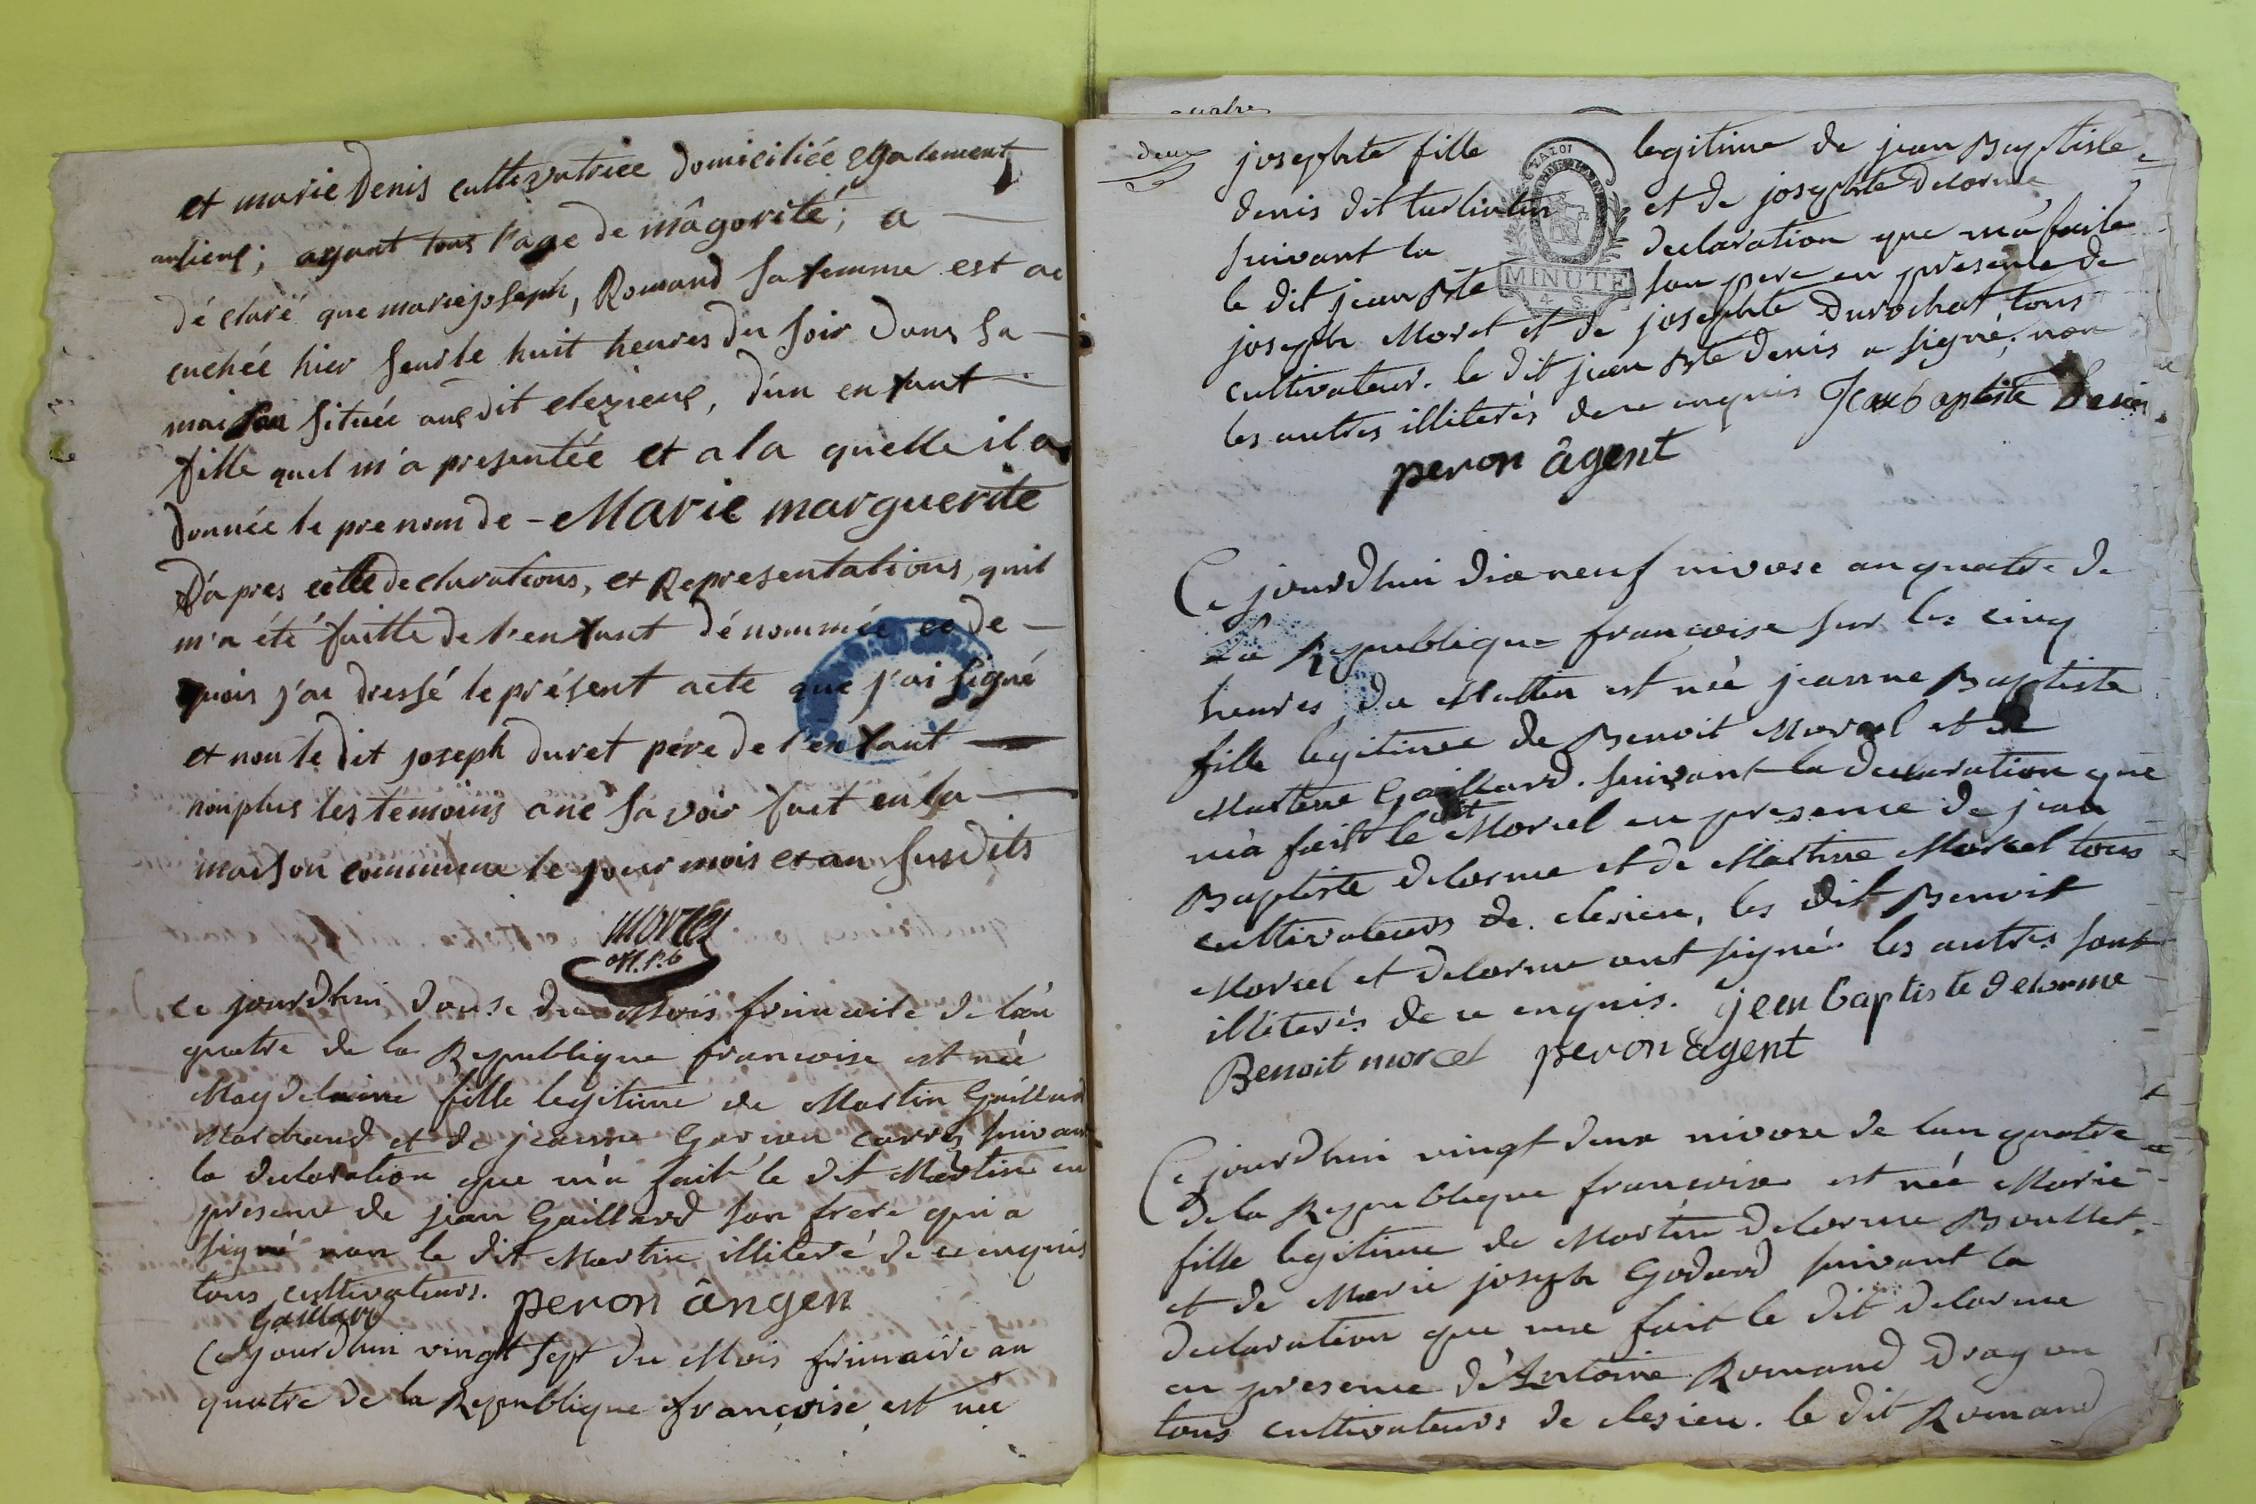 et marie Denis cultivatrice domiciliée egalement
audiens; ayant tous l'age de mâgorité; a
déclaré que marie joseph, Romand sa femme est ac
cuchée hier seur le huit heures du soir dans sa
maison située audit elezieus, d'un enfant
fille quel m'a presentée et a la quelle il a
donnée le prenom de - Marie marguerite
D'apres cette declarations, et Representations, quil
m'a été faitte de l'enfant dénommée ce de
quois j'ai dressé le présent acte que j'ai signé
et non le dit joseph duret pére de l'enfant
nonplus les temoins a ne savoir fait en la
maison commune le jour mois et an susdits
morcel
ce jourdhui douse du Mois frimaire de lan
quatre de la Republique francoise est née
Magdelaine fille legitime de Martin Gaillard
Marchand et de jeanne suivant
la declaration que m'a fait le dit Martin en
presence de jean Gaillard son frere qui a
signé non le dit Martin illiteré de ce enquis
tous cultivateurs.
Gaillard peron ângen
Ce jourdhui vingt sept du Mois frimaire an
quatre de la Republique françoise est née
deux
josephte fille legitime de jean Baptiste
denis dit turlintin et de josephte Delorme
suivant la declaration que m'a faite
le dit jean Bte son pere en presence de
joseph Morel et de josephte Durochat tous
cultivateur. le dit jean Bte Denis a signé, non
les autres illiterés de ce enquis Jean baptiste Denis
peron âgent
MINUTE
4. S.
Ce jourdhui dix neuf nivose an quatre de
La Republique françoise sur les cinq
heures du Mattin est née jeanne Baptiste
fille legitime de Benoit Morcel et de
Martine Gaillard. suivant la declaration que
m'a fait le dit Morcel en presence de jean
Baptiste delorme et de Martine Morcel tous
cultivateurs de clesieu, les dit Benoit
Morcel et delorme ont signé les autres sont
illiterés de ce enquis. jean baptiste delorme
Benoit morcel peron âgent
Ce jourdhui vingt deux nivose de lan quatre
de la Republique francoise est née Marie
fille legitime de Martin delorme Boullet
et de Marie joseph Godard suivant la
declaration que me fait le dit delorme
en presence d'Antoine Romand Dragon
tous cultivateurs de clesieu. le dit Romand